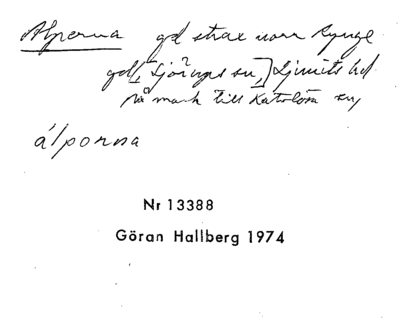 Alperna gd strax norr Rynge
gd[, Sjörups sn,] Ljunits hd
på mark till Katslösa sn,
álporna
Nr 13388
Göran Hallberg 1974